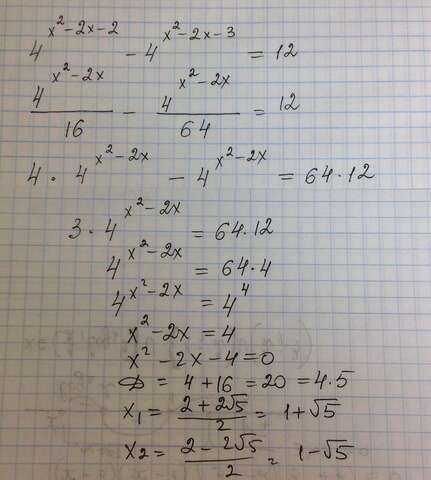 4^(x²-2x-2) - 4^(x²-2x-3) = 12
4^(x²-2x)/16 - 4^(x²-2x)/64 = 12
4 · 4^(x²-2x) - 4^(x²-2x) = 64·12
3 · 4^(x²-2x) = 64·12
4^(x²-2x) = 64·4
4^(x²-2x) = 4⁴
x²-2x = 4
x²-2x-4=0
D = 4+16 = 20 = 4·5
x₁ = (2+2√5)/2 = 1+√5
x2 = (2-2√5)/2 = 1-√5